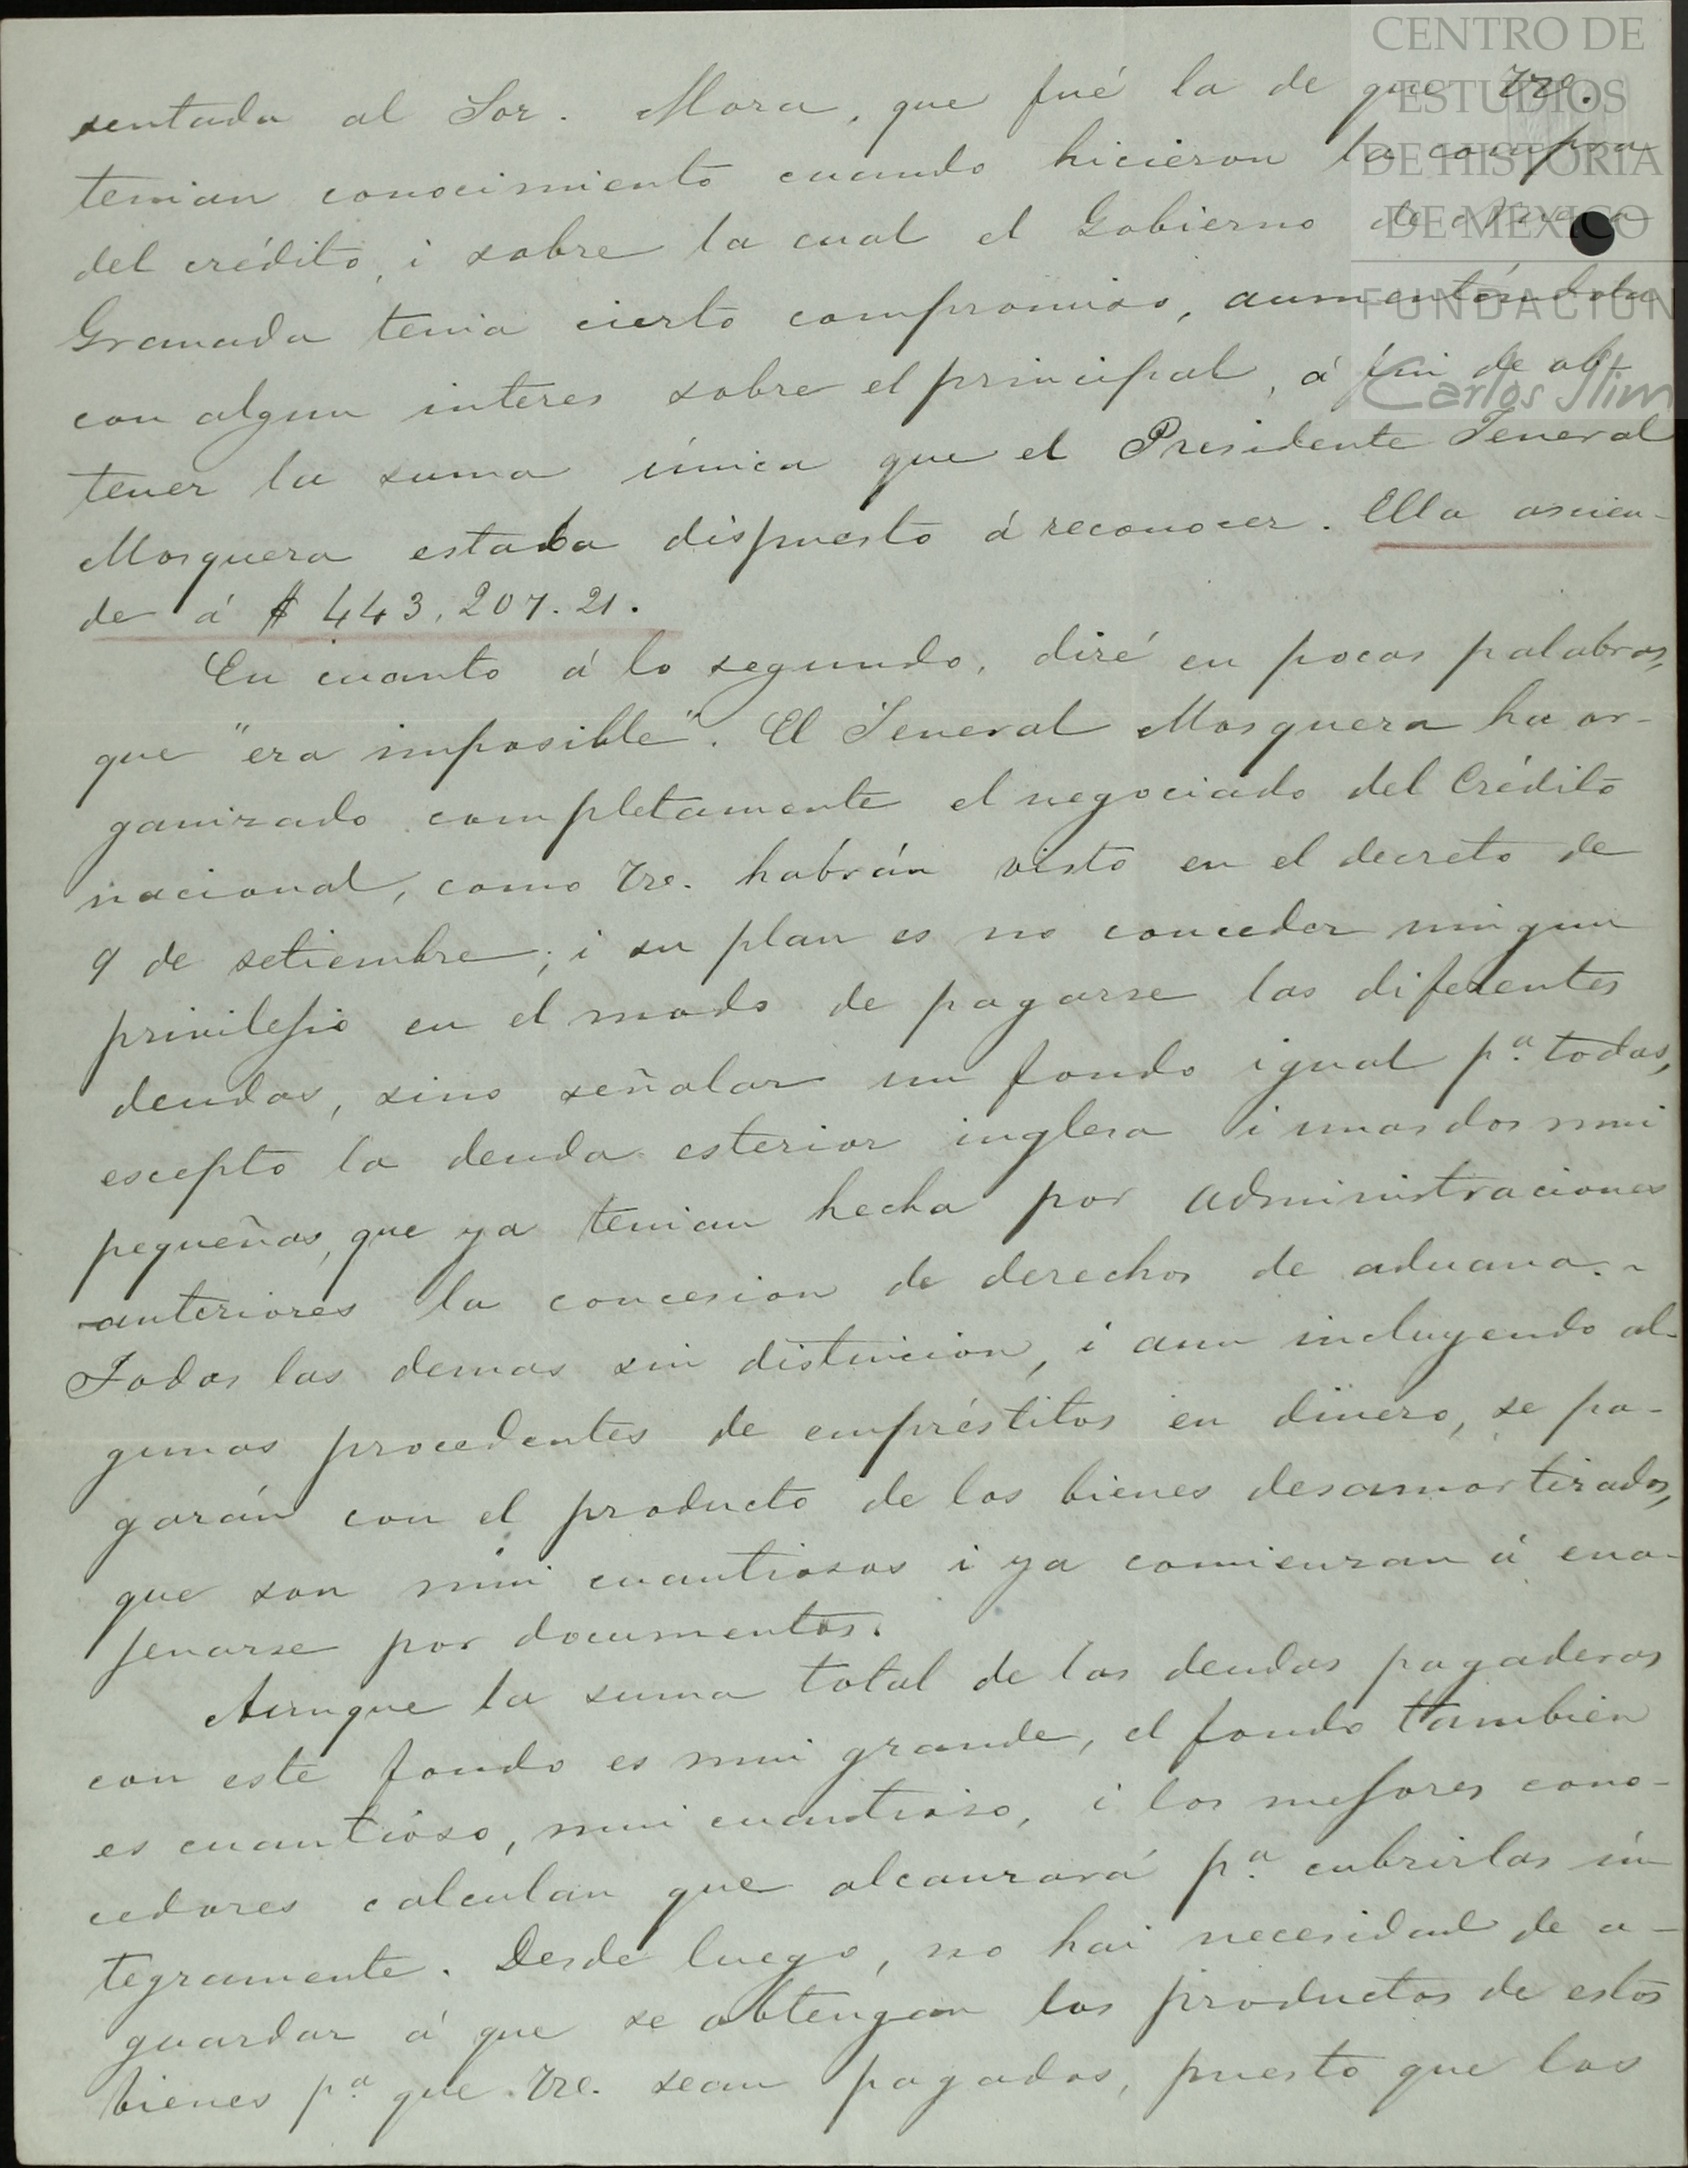 CENTRO DE
ESTUDIOS
DE HISTORIA
DE MÉXICO
FUNDACIÓN
Carlos Slim
sentada al Sor. Mora, que fué la de que Vze.
tenian conocimiento cuando hicieron la compra
del crédito, i sobre la cual el Gobierno de Nueva
Granada tenia cierto compromiso, aumentándola
con algun interes sobre el principal, á fin de ob-
tener la suma única que el Presidente Jeneral
Mosquera estaba dispuesto á reconocer. Ella ascien-
de á $ 443,207.21.
En cuanto á lo segundo, diré en pocas palabras,
que "era imposible". El Jeneral Mosquera ha or-
ganizado completamente el negociado del Crédito
nacional, como Vze. habrán visto en el decreto de
9 de setiembre; i su plan es no conceder ningun
privilejio en el modo de pagarse las diferentes
deudas, sino señalar un fondo igual pª. todas,
escepto la deuda esterior inglesa i unas dos mui
pequeñas, que ya tenian hecha por administraciones
anteriores la concesion de derechos de aduana.-
Todas las demas sin distincion, i aun incluyendo al-
gunas procedentes de empréstitos en dinero, se pa-
garán con el producto de los bienes desamortizados,
que son mui cuantiosos i ya comienzan á ena-
jenarse por documentos.
Aunque la suma total de las deudas pagaderas
con este fondo es mui grande, el fondo tambien
es cuantioso, mui cuantioso, i los mejores cono-
cedores calculan que alcanzará pª. cubrirlas ín
tegramente. Desde luego, no hai necesidad de a-
guardar á que se obtengan los productos de estos
bienes pª. que Vze. sean pagados, puesto que los